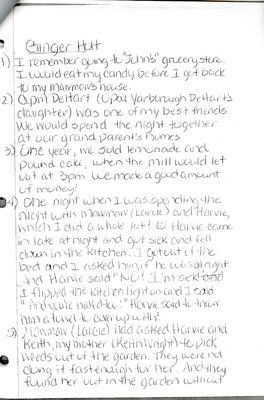 Ginger Hutt
1) I remember going to "John's" grocery store.
I would eat my candy before I got back
to my mawmow's house.
2) April DeHart (Opal Yarborough DeHart's
daughter) was one of my best friends
We would spend the night together
at our grand parent's homes.
3) One year, we sold lemonade and
pound cake, when the mill would let
out at 3pm. We made a good amount
of money!
4) One night when I was spending the
night with Mawmow (Larcie) and Harvie,
which I did a whole lot! Harvie came
in late at night and got sick and fell
down in the kitchen. I got out of the
bed and I asked him if he was alright
and Harvie said "No! I'm sick
I flipped the kitchen light on and I said
"And you're naked too!" Harvie said to throw
him a towel to cover up with!
5) Mawmow (Larcie) had asked Harvie and
Keith, my brother (Keith Wright) to pick
weeds out of the garden. They were not
doing it fast enough for her. And they
found her out in the garden without